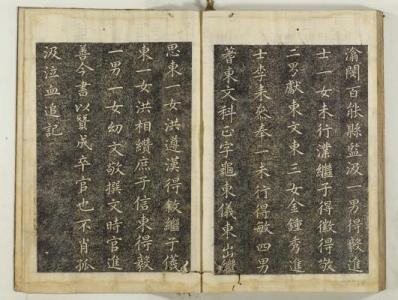 渝閔百能縣監汲一男得毅進
士一女未行渫繼子得徵得敬
二男獻東文東三女金鍾秀進
士李耒叅奉一未行得敏四男
蓍東文科正字龜東儀東出繼
思東一女洪遵漢得敍繼子儀
東一女洪相纘庶子信東得毅
一男一女幼文敬撰文時官進
善今書以贊成卒官也不肖孤
汲泣血追記